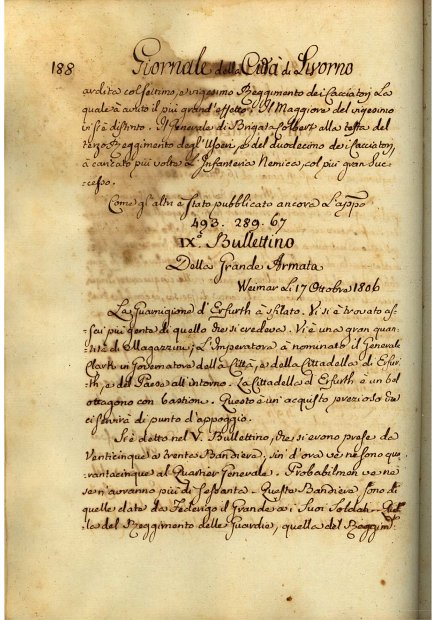 188 Giornale della Città di Livorno
ardita col settimo, e vigesimo Reggimento dei Cacciatori La
quale à avuto il più grand'effetto. Il Maggiore del vigesimo
vi si è distinto. Il Generale di Brigata Colbert alla testa del
terzo Reggimento degl'Usseri, e del duodecimo dei Cacciatori,
à caricato più volte l'Infanteria Nemica, col più gran suc-
cesso.
Come gl'altri è stato pubblicato ancora l'appo
493. 289. 67
IX.º Bullettino
Della Grande Armata
Weimar Lì 17 Ottobre 1806
La Guarnigione d'Erfurth à sfilato. Vi si è trovato as-
sai più gente di quello che si credeva. Vi è una gran quan-
tità di Magazzini; L'Imperatore à nominato il Generale
Clark in Governatore della Città, e della Cittadella di Erfur-
th, e del Paese all'intorno. La Cittadella d'Erfurth è un bel
ottagono con bastioni. Questo è un'acquisto prezioso che
ci servirà di punto d'appoggio.
Si è detto nel V. Bullettino, che si erono prese da
Venticinque a trenta Bandiere, sin d'ora ve ne sono qua-
rantacinque al Quartier Generale. Probabilmen ve ne
se n'avranno più di sessanta. Queste Bandiere, sono di
quelle date da Federigo il Grande a i Suoi Soldati. Quel-
la del Reggimento delle Guardie, quella del Reggim: